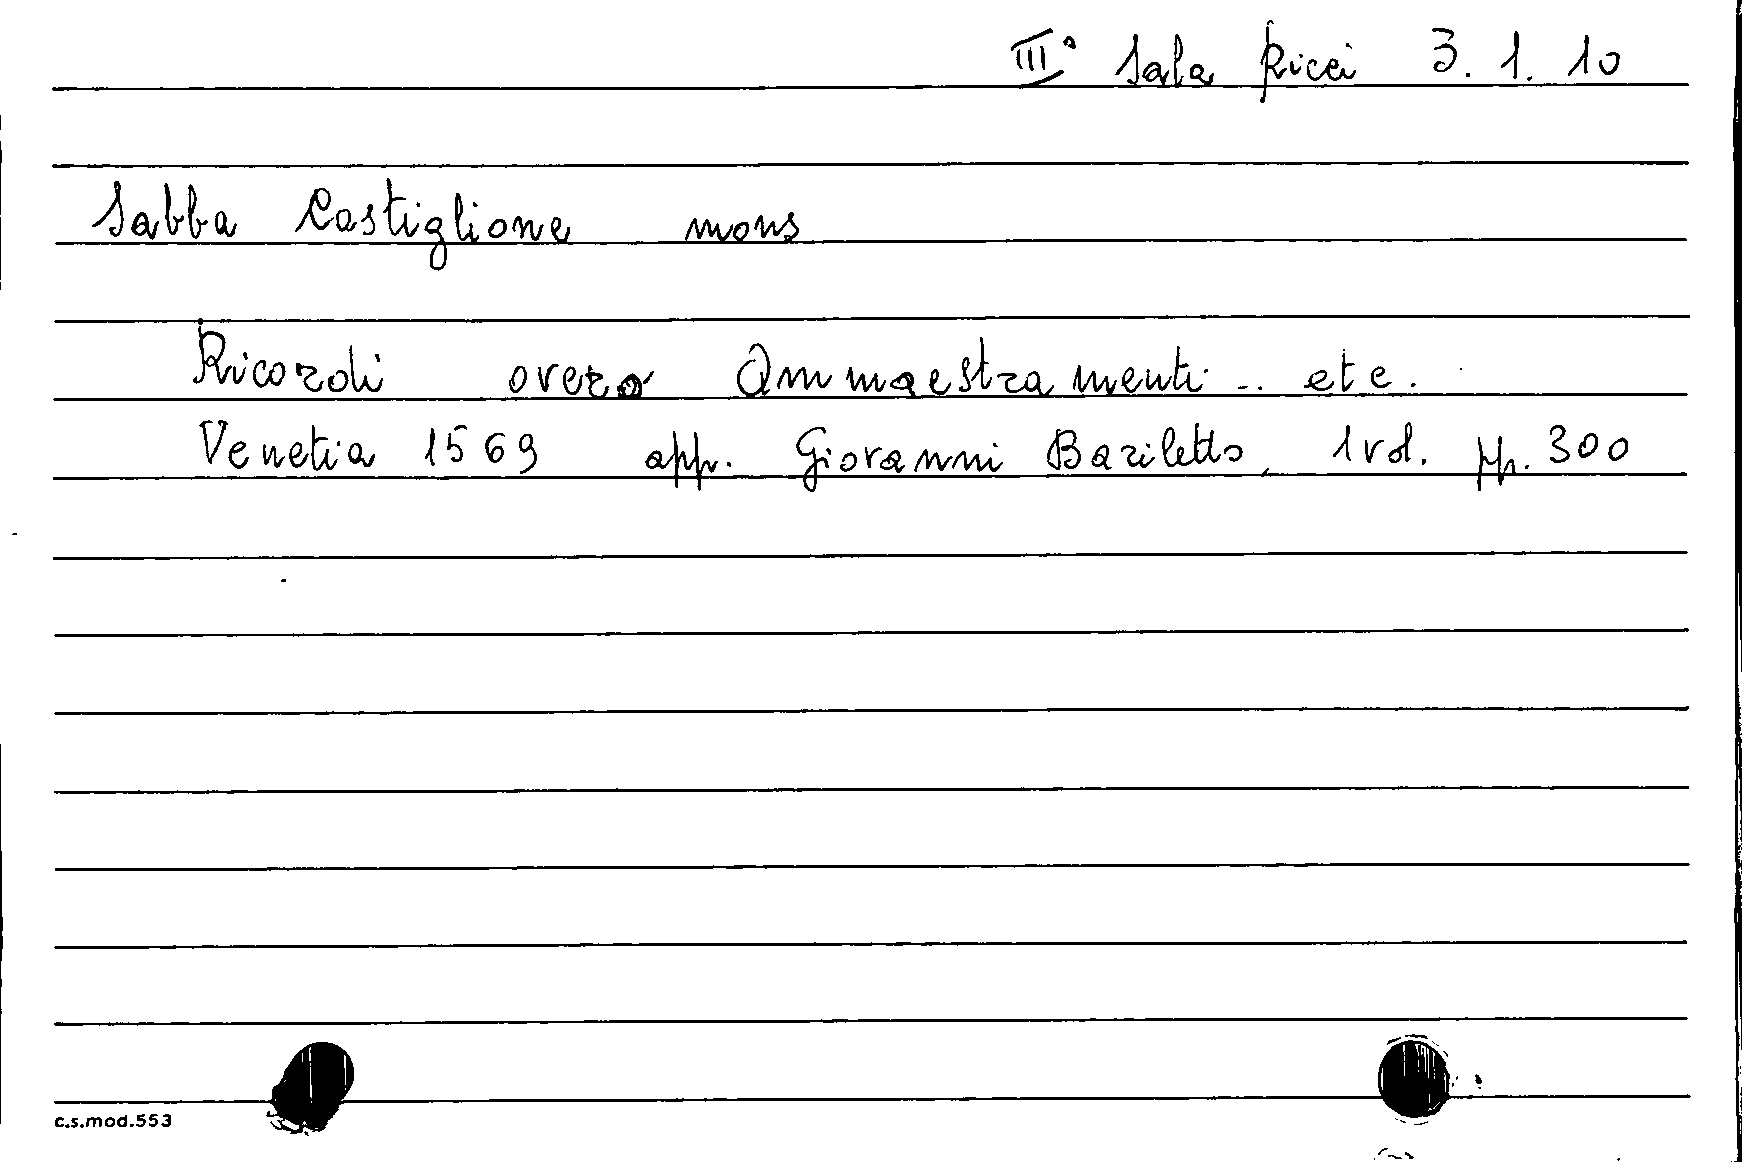 III° Sala Ricci 3.1.10
Sabba Castiglione mons
Ricordi overo Ammaestramenti .. etc.
Venetia 1569 app. Giovanni Bariletto, 1 vol. pp. 300
c.s.mod.553